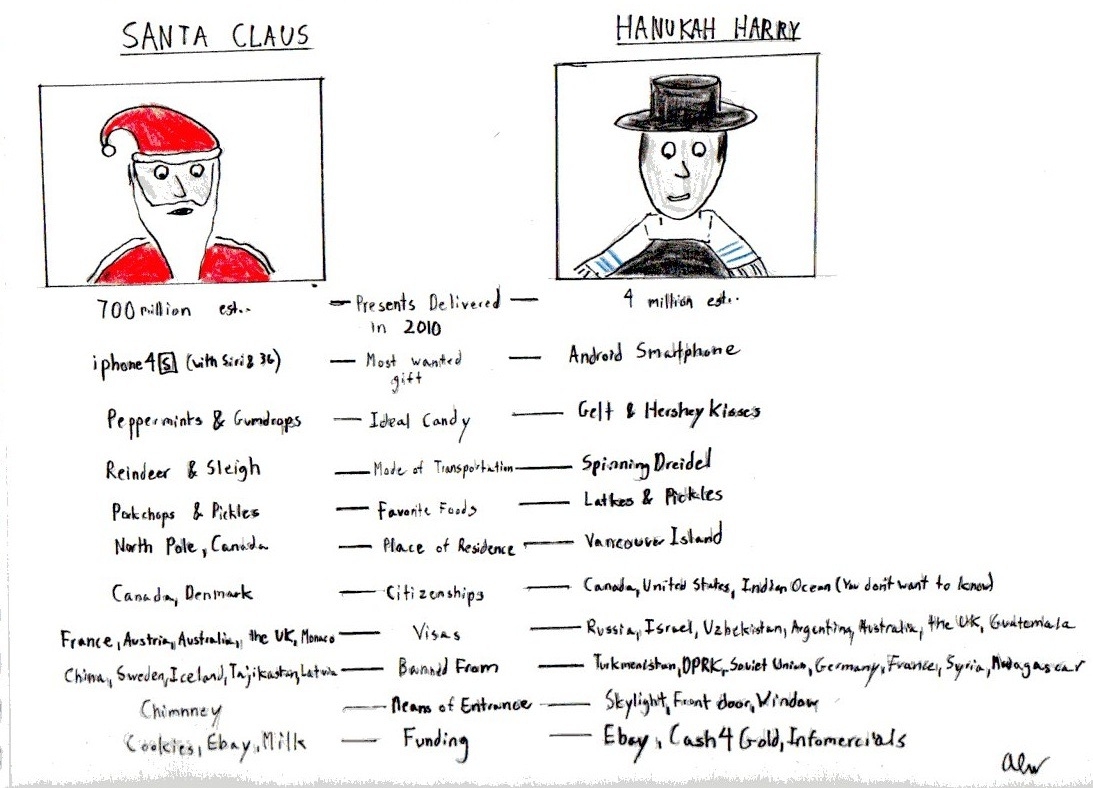 SANTA CLAUS HANUKAH HARRY
700 million est.. — Presents Delivered in 2010 — 4 million est..
iphone 4[S] (with Siri & 3G) — Most wanted gift — Android Smartphone
Peppermints & Gumdrops — Ideal Candy — Gelt & Hershey Kisses
Reindeer & Sleigh — Mode of Transportation — Spinning Dreidel
Porkchops & Pickles — Favorite Foods — Latkes & Pickles
North Pole, Canada — Place of Residence — Vancouver Island
Canada, Denmark — Citizenships — Canada, United States, Indian Ocean (You don't want to know)
France, Austria, Australia, the UK, Monaco — Visas — Russia, Israel, Uzbekistan, Argentina, Australia, the UK, Guatemala
China, Sweden, Iceland, Tajikastan, Latvia — Banned From — Turkmenistan, DPRK, Soviet Union, Germany, France, Syria, Madagascar
Chimnney — Means of Entrance — Skylight, Front door, Window
Cookies, Ebay, Milk — Funding — Ebay, Cash 4 Gold, Infomercials